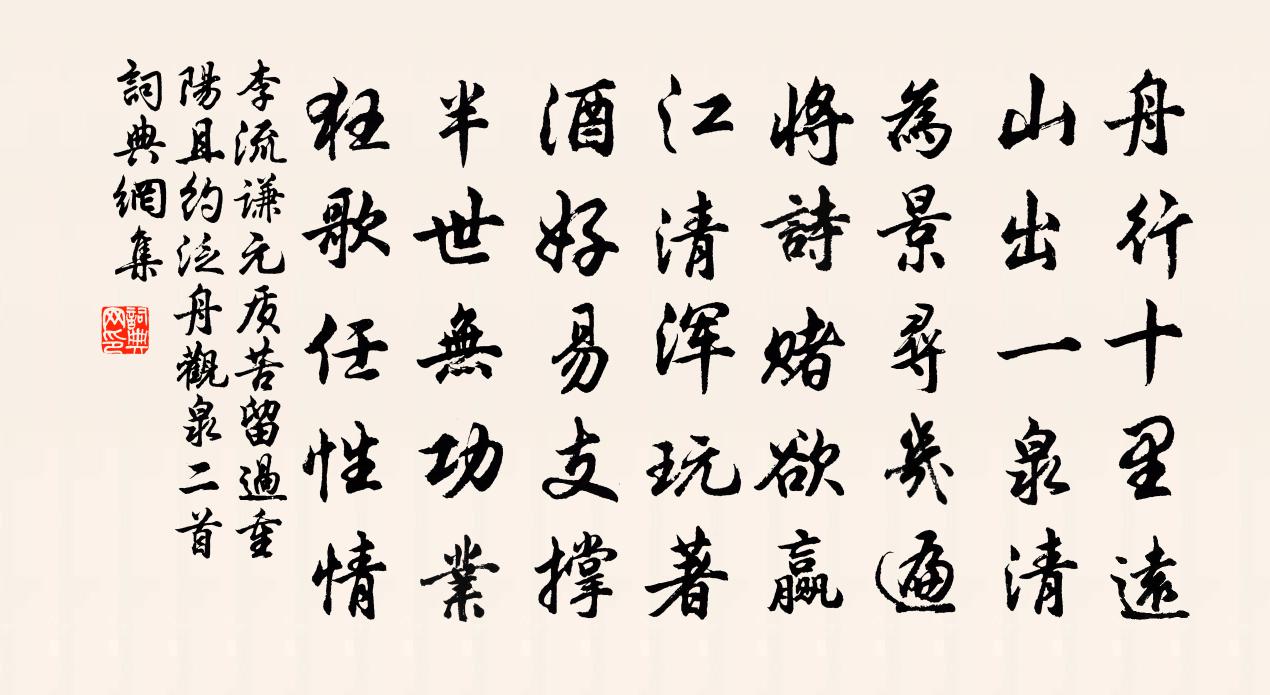 舟行十里遠
山出一泉清
為景尋幾遍
將詩赌欲贏
江清浑玩著
酒好易支撐
半世無功業
狂歌任性情
李流谦元质苦留過重
陽且約泛舟觀泉二首
詞典網集
詞典网印